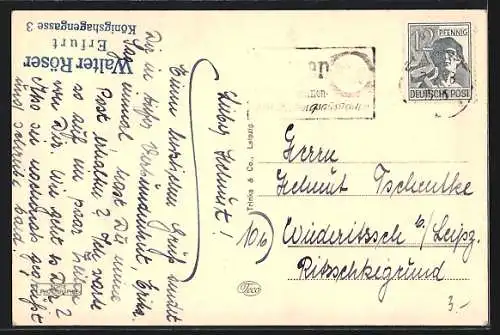 Walter Röser
Erfurt
Königshagengasse 3
Lieber Helmut!
Einen herzlichen Gruß sendet
Dir in tiefer Verbundenheit, Erika.
Sag einmal, hast Du meine
Post erhalten? Ich warte
so auf ein paar Zeilen
von Dir. Wie geht es Dir?
Also sei nochmals gegrüßt
und schreibe bald.
12 PFENNIG
DEUTSCHE POST
Trinks & Co., Leipzig
Herrn
Helmut Tschentke
(10b) Wiederitzsch b/ Leipz.
Ritschkegrund
Trico
3.-